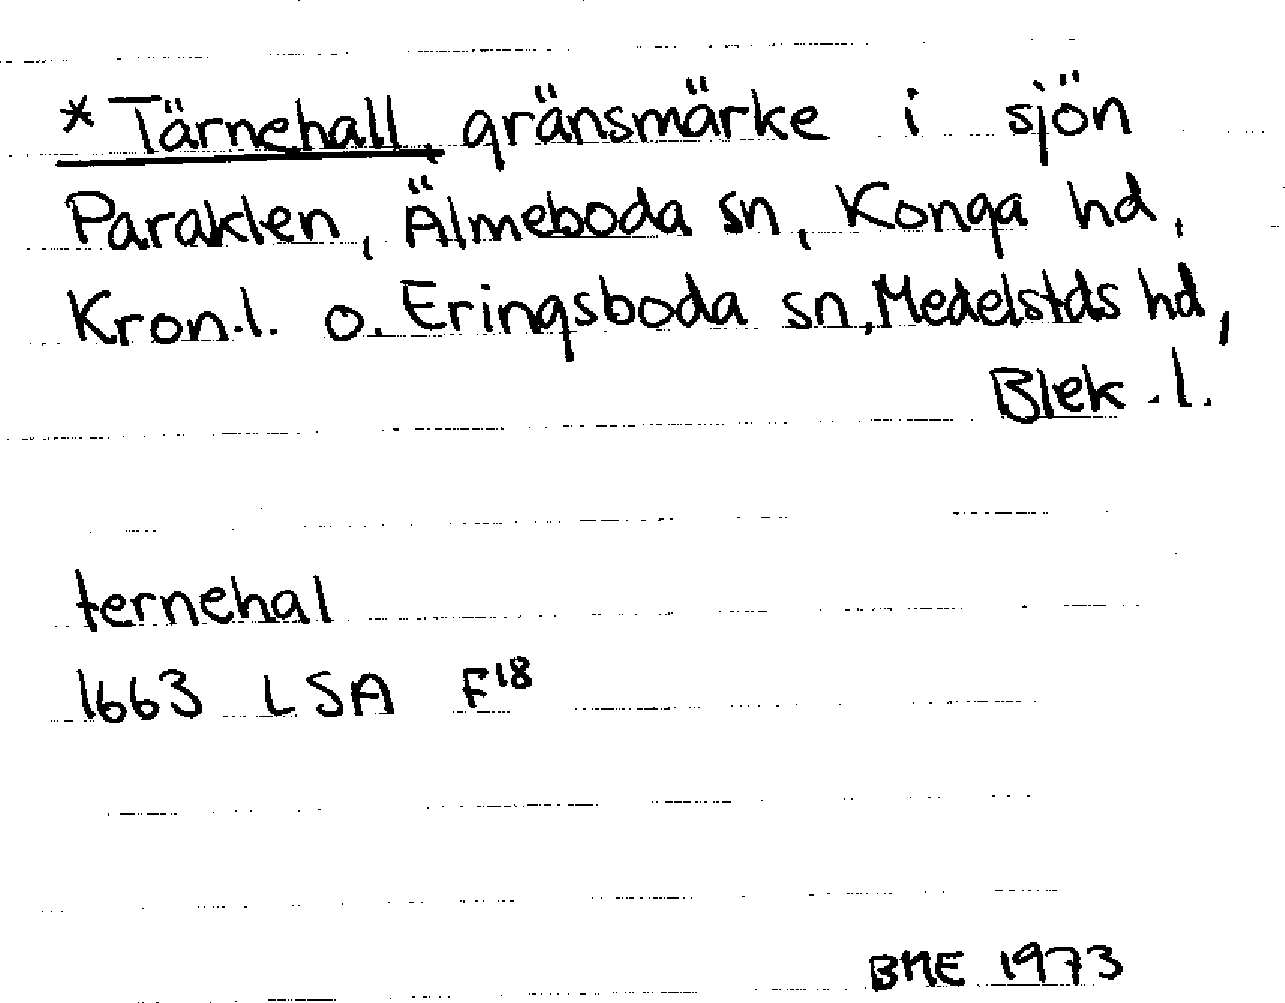 * Tärnehall, gränsmärke i sjön
Paraklen, Älmeboda sn, Konga hd,
Kron.l. o. Eringsboda sn, Medelstds hd,
Blek.l.
ternehal
1663 LSA F18
BME 1973